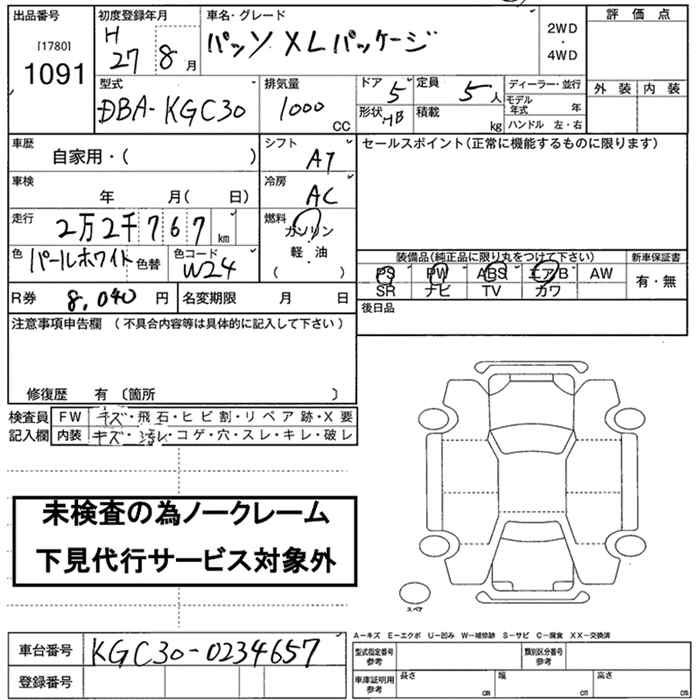 出品番号 初度登録年月 車名・グレード 評価点
[1780] H パッソ XLパッケージ 2WD
1091 27 8月 ・
4WD
型式 排気量 ドア 定員 ディーラー・並行 外装 内装
DBA-KGC30 1000 CC 5 5人 モデル年式 年
形状 HB 積載 kg ハンドル 左・右
車歴 シフト セールスポイント(正常に機能するものに限ります)
自家用・( ) AT
車検 冷房
年 月( 日) AC
走行 燃料
2万2千767 km ガソリン
色 色コード 軽・油 装備品(純正品に限り丸をつけて下さい) 新車保証書
パールホワイト 色替 W24 ( ) PS PW ABS エアB AW 有・無
SR ナビ TV カワ
R券 8,040 円 名変期限 月 日 後日品
注意事項申告欄 (不具合内容等は具体的に記入して下さい)
修復歴 有 〔箇所 〕
検査員 FW キズ・飛石・ヒビ割・リペア跡・X要
記入欄 内装 キズ・汚レ・コゲ・穴・スレ・キレ・破レ
未検査の為ノークレーム
下見代行サービス対象外
スペア
A-キズ E-エクボ U-凹み W-補修跡 S-サビ C-腐食 XX-交換済
車台番号 KGC30-0234657 型式指定番号 参考 類別区分番号 参考
登録番号 車庫証明用 参考 長さ cm 幅 cm 高さ cm